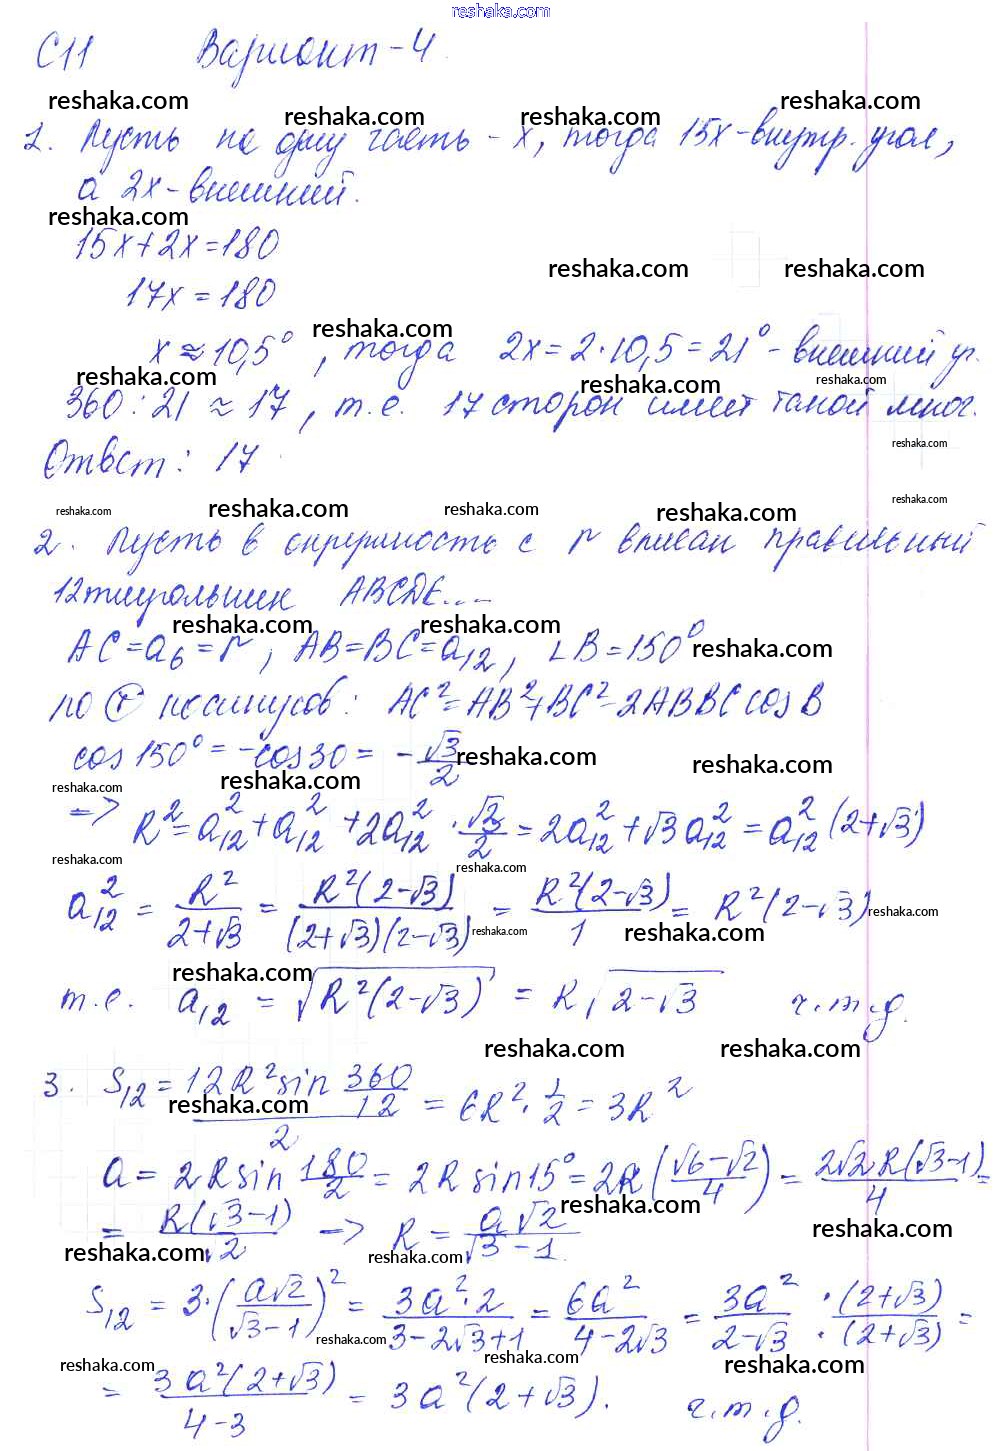 reshaka.com
С11 Вариант-4.
reshaka.com reshaka.com reshaka.com
1. Пусть на одну часть - x, тогда 15x - внутр. угол,
а 2x - внешний.
reshaka.com
15x+2x=180
reshaka.com reshaka.com
17x=180
reshaka.com
x≈10,5°, тогда 2x=2·10,5=21° - внешний уг.
reshaka.com reshaka.com reshaka.com
360:21≈17, т.е. 17 сторон имеет такой мног.
reshaka.com
Ответ: 17
reshaka.com reshaka.com reshaka.com reshaka.com reshaka.com
2. Пусть в окружность с r вписан правильный
12тиугольник ABCDE...
reshaka.com reshaka.com reshaka.com
AC=a₆=r, AB=BC=a₁₂, ∠B=150°
по Ⓣ косинусов: AC²=AB²+BC²-2ABBC cos B
cos150°=-cos30=-√3/2
reshaka.com reshaka.com reshaka.com reshaka.com
=> R²=a₁₂²+a₁₂²+2a₁₂²·√3/2=2a₁₂²+√3a₁₂²=a₁₂²(2+√3)
reshaka.com reshaka.com
a₁₂²=R²/(2+√3)=R²(2-√3)/((2+√3)(2-√3))=R²(2-√3)/1=R²(2-√3)
reshaka.com reshaka.com reshaka.com
reshaka.com
т.е. a₁₂=√(R²(2-√3))=R√(2-√3) ч.т.д.
reshaka.com reshaka.com
3. S₁₂=(12R² sin 360/12)/2=6R²·1/2=3R²
reshaka.com
a=2R sin 180/2=2R sin15°=2R((√6-√2)/4)=2√2R(√3-1)/4=
reshaka.com reshaka.com
=R(√3-1)/√2 => R=a√2/(√3-1)
reshaka.com reshaka.com
S₁₂=3·(a√2/(√3-1))²=3a²·2/(3-2√3+1)=6a²/(4-2√3)=3a²/(2-√3)·(2+√3)/(2+√3)=
reshaka.com reshaka.com reshaka.com reshaka.com
=3a²(2+√3)/(4-3)=3a²(2+√3). ч.т.д.